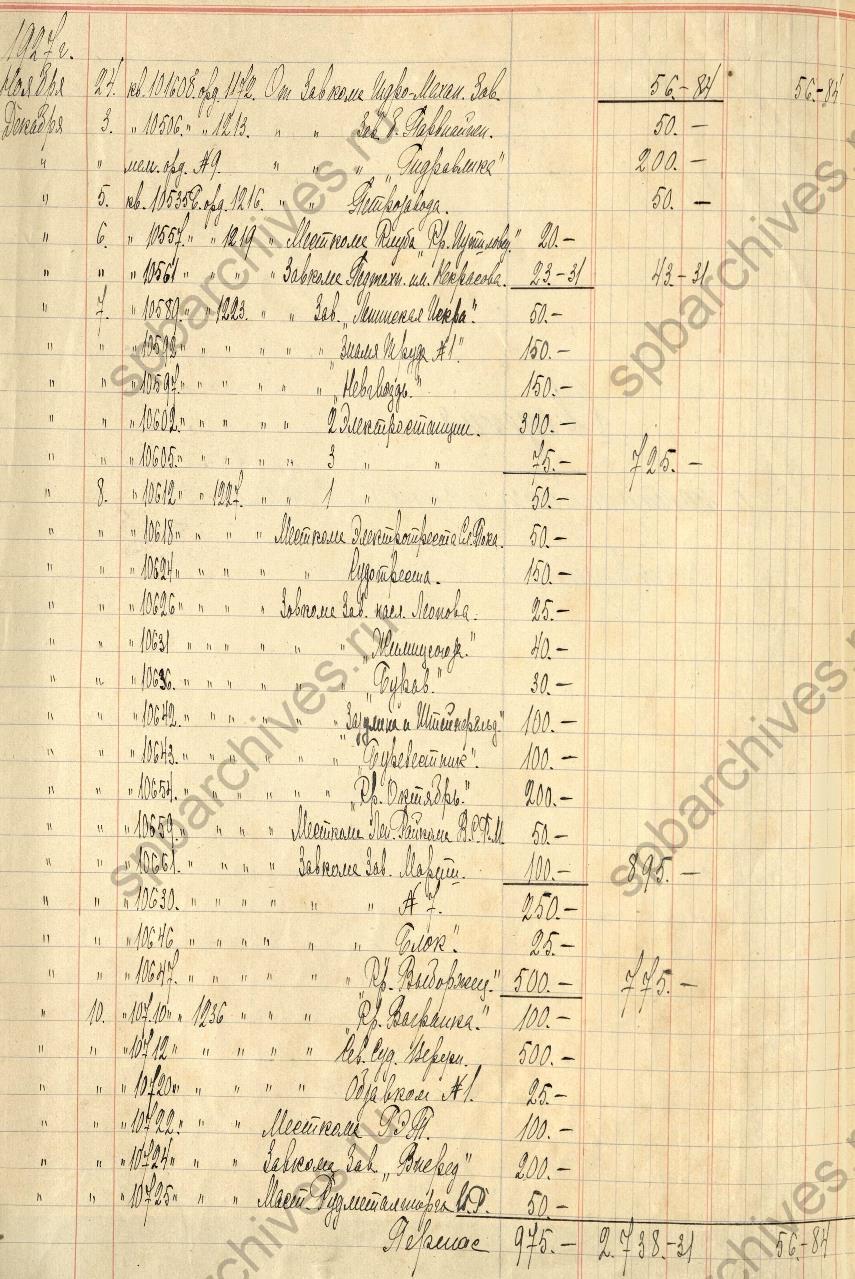 1927г.
Ноября 24. кв. 101608. орд. 1172. От Завкома Гидро-Механ. Зав. 56.-84 56.-84
Декабря 3. " 10506. " " 1213. " " Зав. 50. -
" " мем. орд. №9. " " " "Гидравлика" 200. -
" 5. кв. 10535 орд. 1216. " " Петрозавода. 50. -
" 6. " 10557. " " 1219 " Месткома Клуба "Кр. Путиловец." 20. -
" " " 10561 " " " " Завкома им. Некрасова. 23-31 43.-31
" 7. " 10589. " " 1223. " " Зав. "Ленинская Искра". 50. -
" " " 10592 " " " " " "Знамя Труда №1". 150. -
" " " 10597. " " " " " "Невгвоздь." 150. -
" " " 10602. " " " " " 2 Электростанции. 300. -
" " " 10605. " " " " " 3 " " 75. - 725. -
" 8. " 10612 " " 1227. " " 1 " " 50. -
" " " 10618 " " " " Месткома Электротреста 50. -
" " " 10624 " " " " " Судотреста. 150. -
" " " 10626 " " " " Завкома Зав. насл. Леонова. 25. -
" " " 10631 " " " " " " 40. -
" " " 10636. " " " " " " "Буров." 30. -
" " " 10642. " " " " " " 100. -
" " " 10643. " " " " " " "Буревестник". 100. -
" " " 10654. " " " " " " "Кр. Октябрь." 200. -
" " " 10659. " " " " Месткома Лен. Райкома В.С.Р.М. 50. -
" " " 10661. " " " " Завкома Зав. Марти. 100. - 895. -
" " " 10630. " " " " " " №7. 250. -
" " " 10646 " " " " " " "Блок". 25. -
" " " 10647. " " " " " " "Кр. Выборжец." 500. - 775. -
" 10. " 10710 " " 1236 " " " "Кр. Вагранка." 100. -
" " " 10712 " " " " " Сев. Суд. Верфи. 500. -
" " " 10720 " " " " " №1. 25. -
" " " 10722. " " " Месткома Р.Э.Т. 100. -
" " " 10724 " " " Завкома Зав. "Вперед" 200. -
" " " 10725 " " " Мест. Рудметалторга 50. -
Перенос 975. - 2.738.-31 56.-84
spbarchives.ru
spbarchives.ru
spbarchives.ru
spbarchives.ru
spbarchives.ru
spbarchives.ru